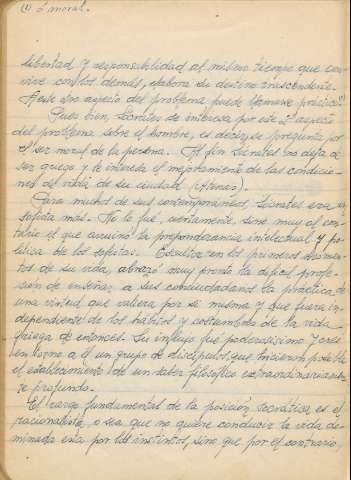 (1) ó moral.
libertad y responsabilidad al mismo tiempo que con-
vive con los demás, elabora su destino trascendente.
A este otro aspecto del problema puede llamarse práctico (1)
Pues bien, Sócrates se interesa por este 2º aspecto
del problema sobre el hombre, es decir, se pregunta por
el ser moral de la persona. Al fin Sócrates no deja de
ser griego y le interesa el mejoramiento de las condicio-
nes de vida de su ciudad (Atenas).
Para muchos de sus contemporáneos, Sócrates era un
sofista más. No lo fué, ciertamente, sino muy al con-
trario el que arruinó la preponderancia intelectual y po-
lítica de los sofistas. Escultor en los primeros momen-
tos de su vida, abrazó muy pronto la difícil profe-
sión de enseñar a sus conciudadanos la práctica de
una virtud que valiera por sí misma y que fuera in-
dependiente de los hábitos y costumbres de la vida
griega de entonces. Su influjo fue poderosísimo y creó
en torno a él un grupo de discípulos que hicieron posible
el establecimiento de un saber filosófico extraordinariamen-
te profundo.
El rasgo fundamental de la posición socrática es el
racionalista, o sea que no quiere conducir la vida do-
minada esta por los instintos, sino que por el contrario,